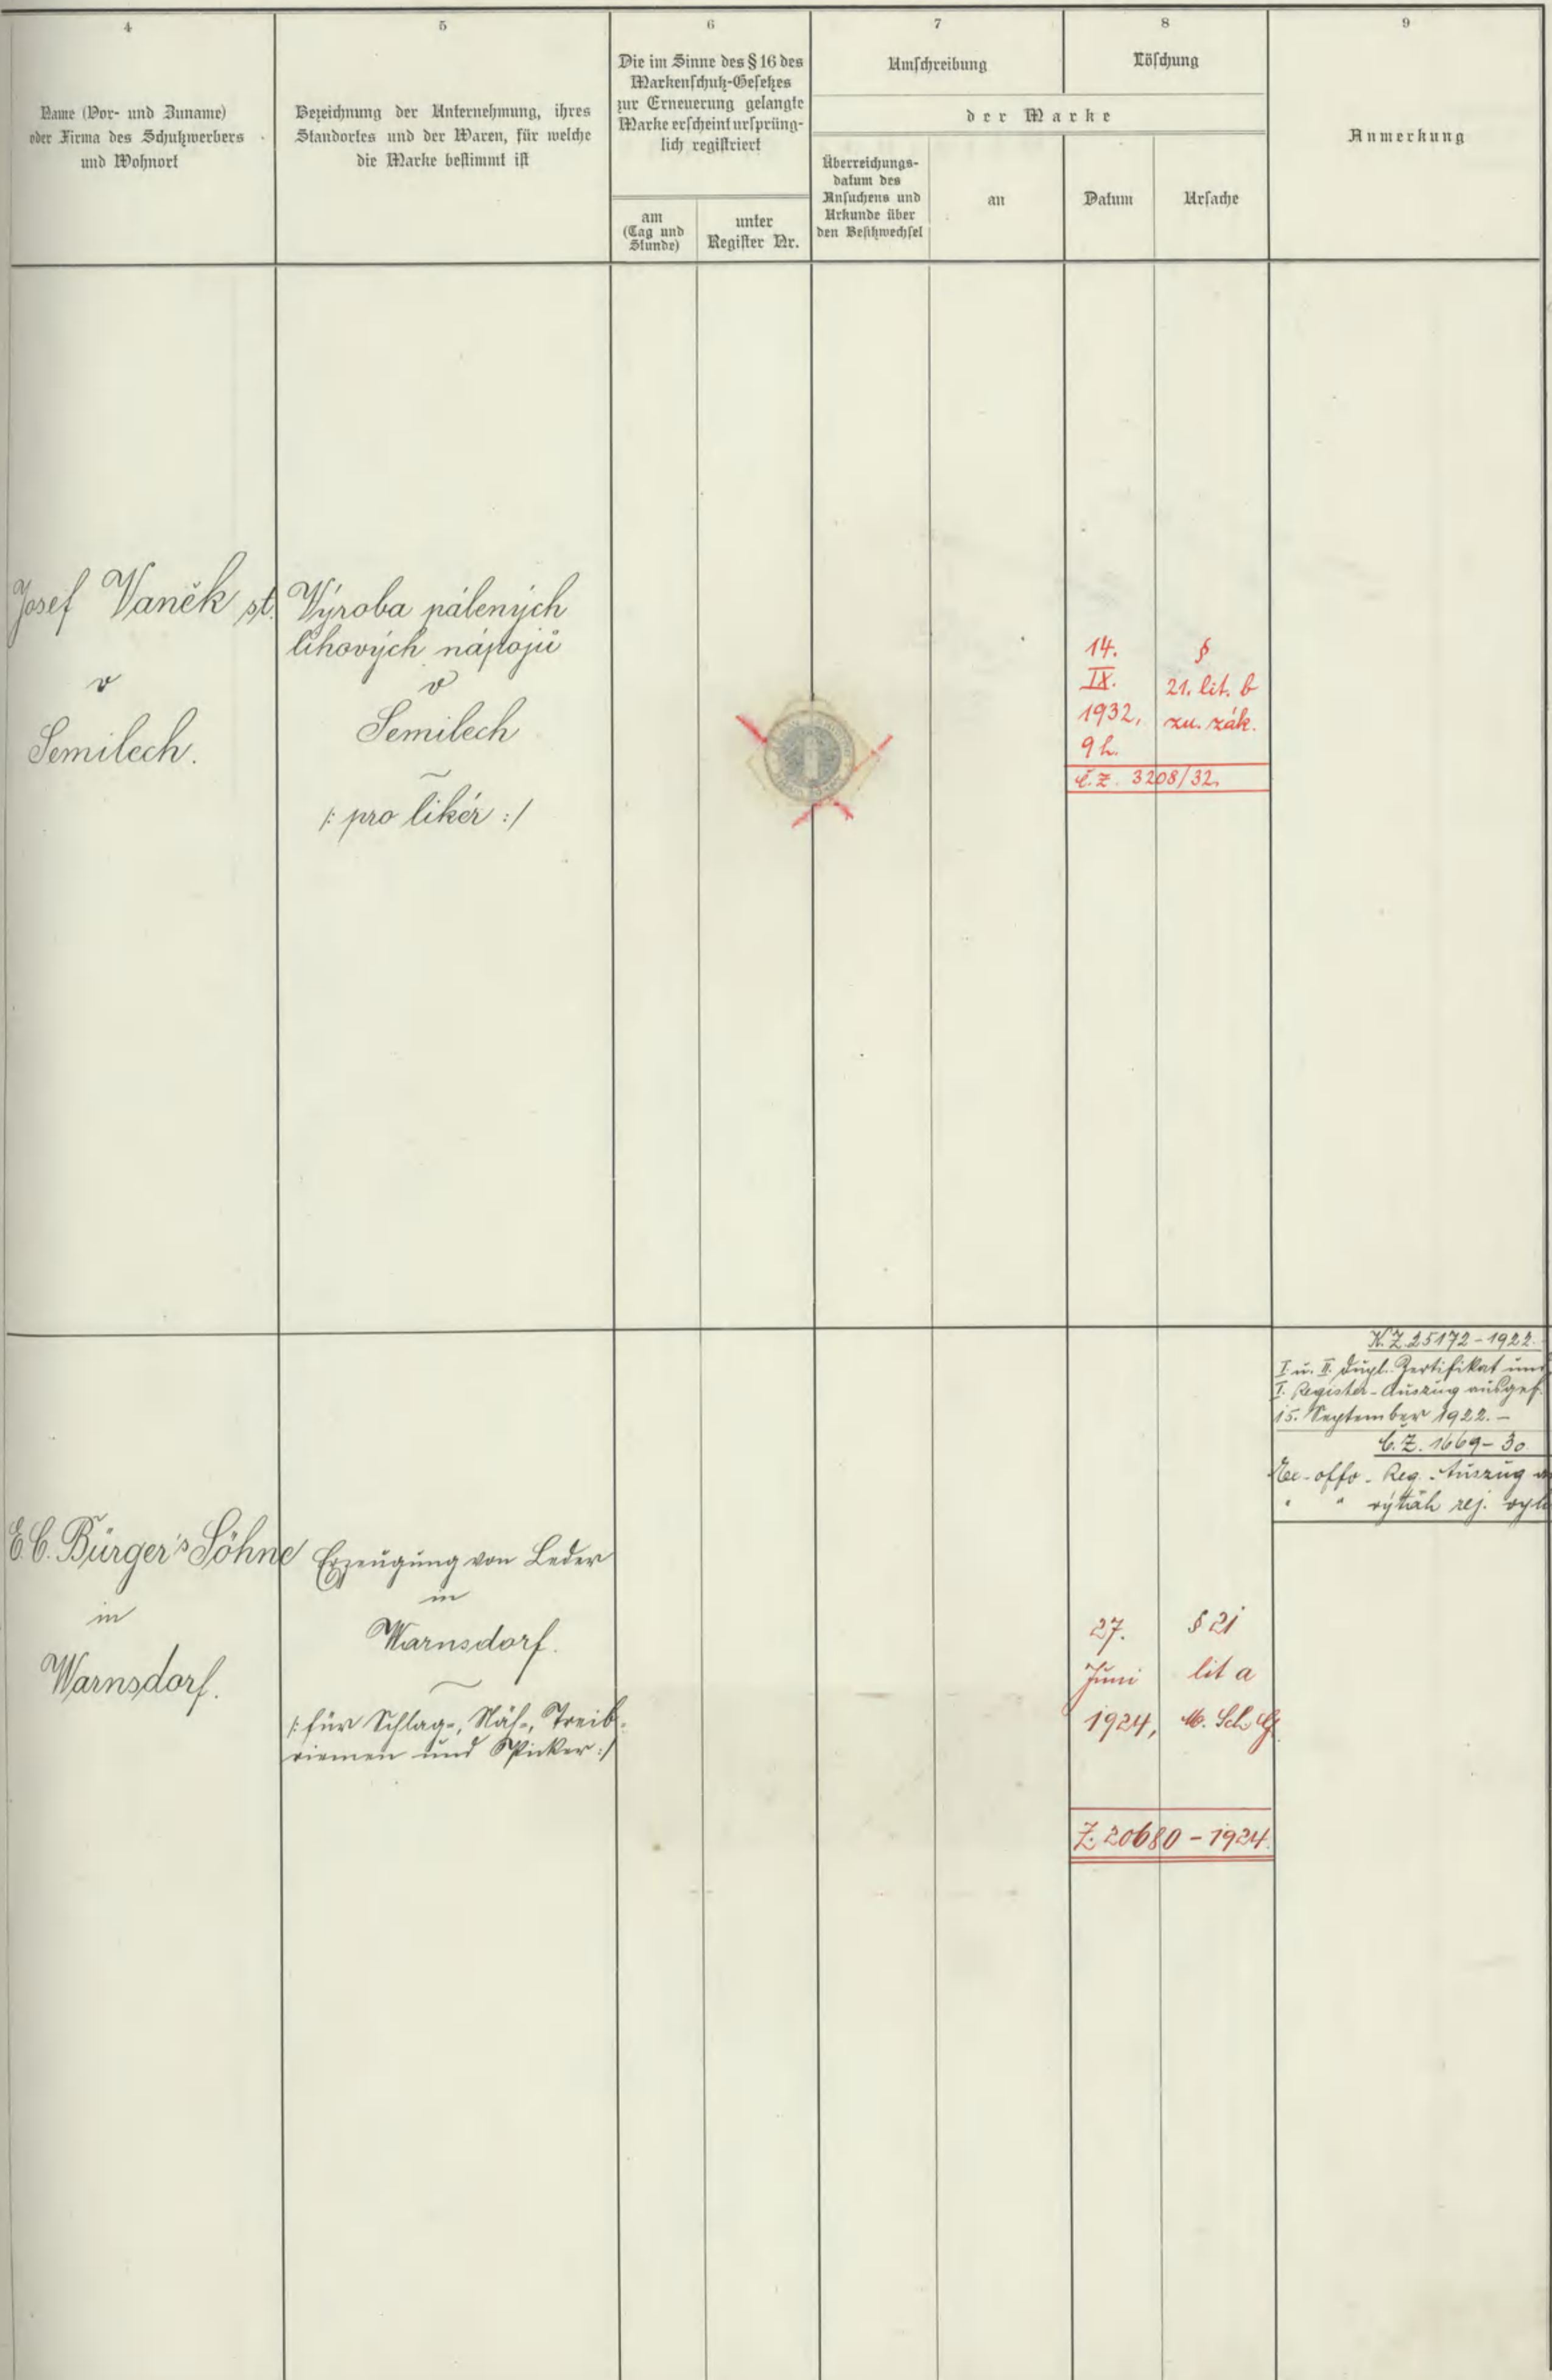 4
Name (Vor- und Zuname)
oder Firma des Schutzwerbers
und Wohnort
5
Bezeichnung der Unternehmung, ihres
Standortes und der Waren, für welche
die Marke bestimmt ist
6
Die im Sinne des § 16 des
Markenschutz-Gesetzes
zur Erneuerung gelangte
Marke erscheint ursprüng-
lich registriert
am
(Tag und
Stunde)
unter
Register Nr.
7
Umschreibung
8
Löschung
der Marke
Überreichungs-
datum des
Ansuchens und
Urkunde über
den Besitzwechsel
an
Datum
Ursache
9
Anmerkung
Josef Vaněk st.
v
Semilech.
Výroba pálených
lihových nápojů
v
Semilech
/: pro likér :/
14.
IX.
1932,
9 h.
§
21. lit. b
zn. zák.
č.z. 3208/32.
E.C. Bürger's Söhne
in
Warnsdorf.
Erzeugung von Leder
in
Warnsdorf.
/: für Schlag-, Näh-, Treib-
riemen und Picker :/
27.
Juni
1924,
§ 21
lit a
M. Sch. G.
Z. 20680 - 1924.
K.Z. 25172 - 1922.
I u. II. dupl. Zertifikat und
I. Register-Auszug ausgef.
15. September 1922. -
C.Z. 1669 - 30
Ex-offo - Reg. Auszug
" " výtah rej.